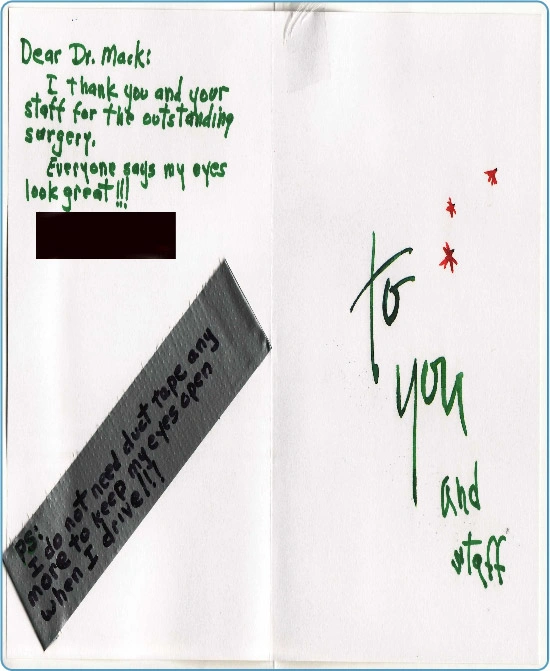 Dear Dr. Mack:
I thank you and your
staff for the outstanding
surgery.
Everyone says my eyes
look great!!!
PS:
I do not need duct tape any
more to keep my eyes open
when I drive!!!
to
you
and
staff